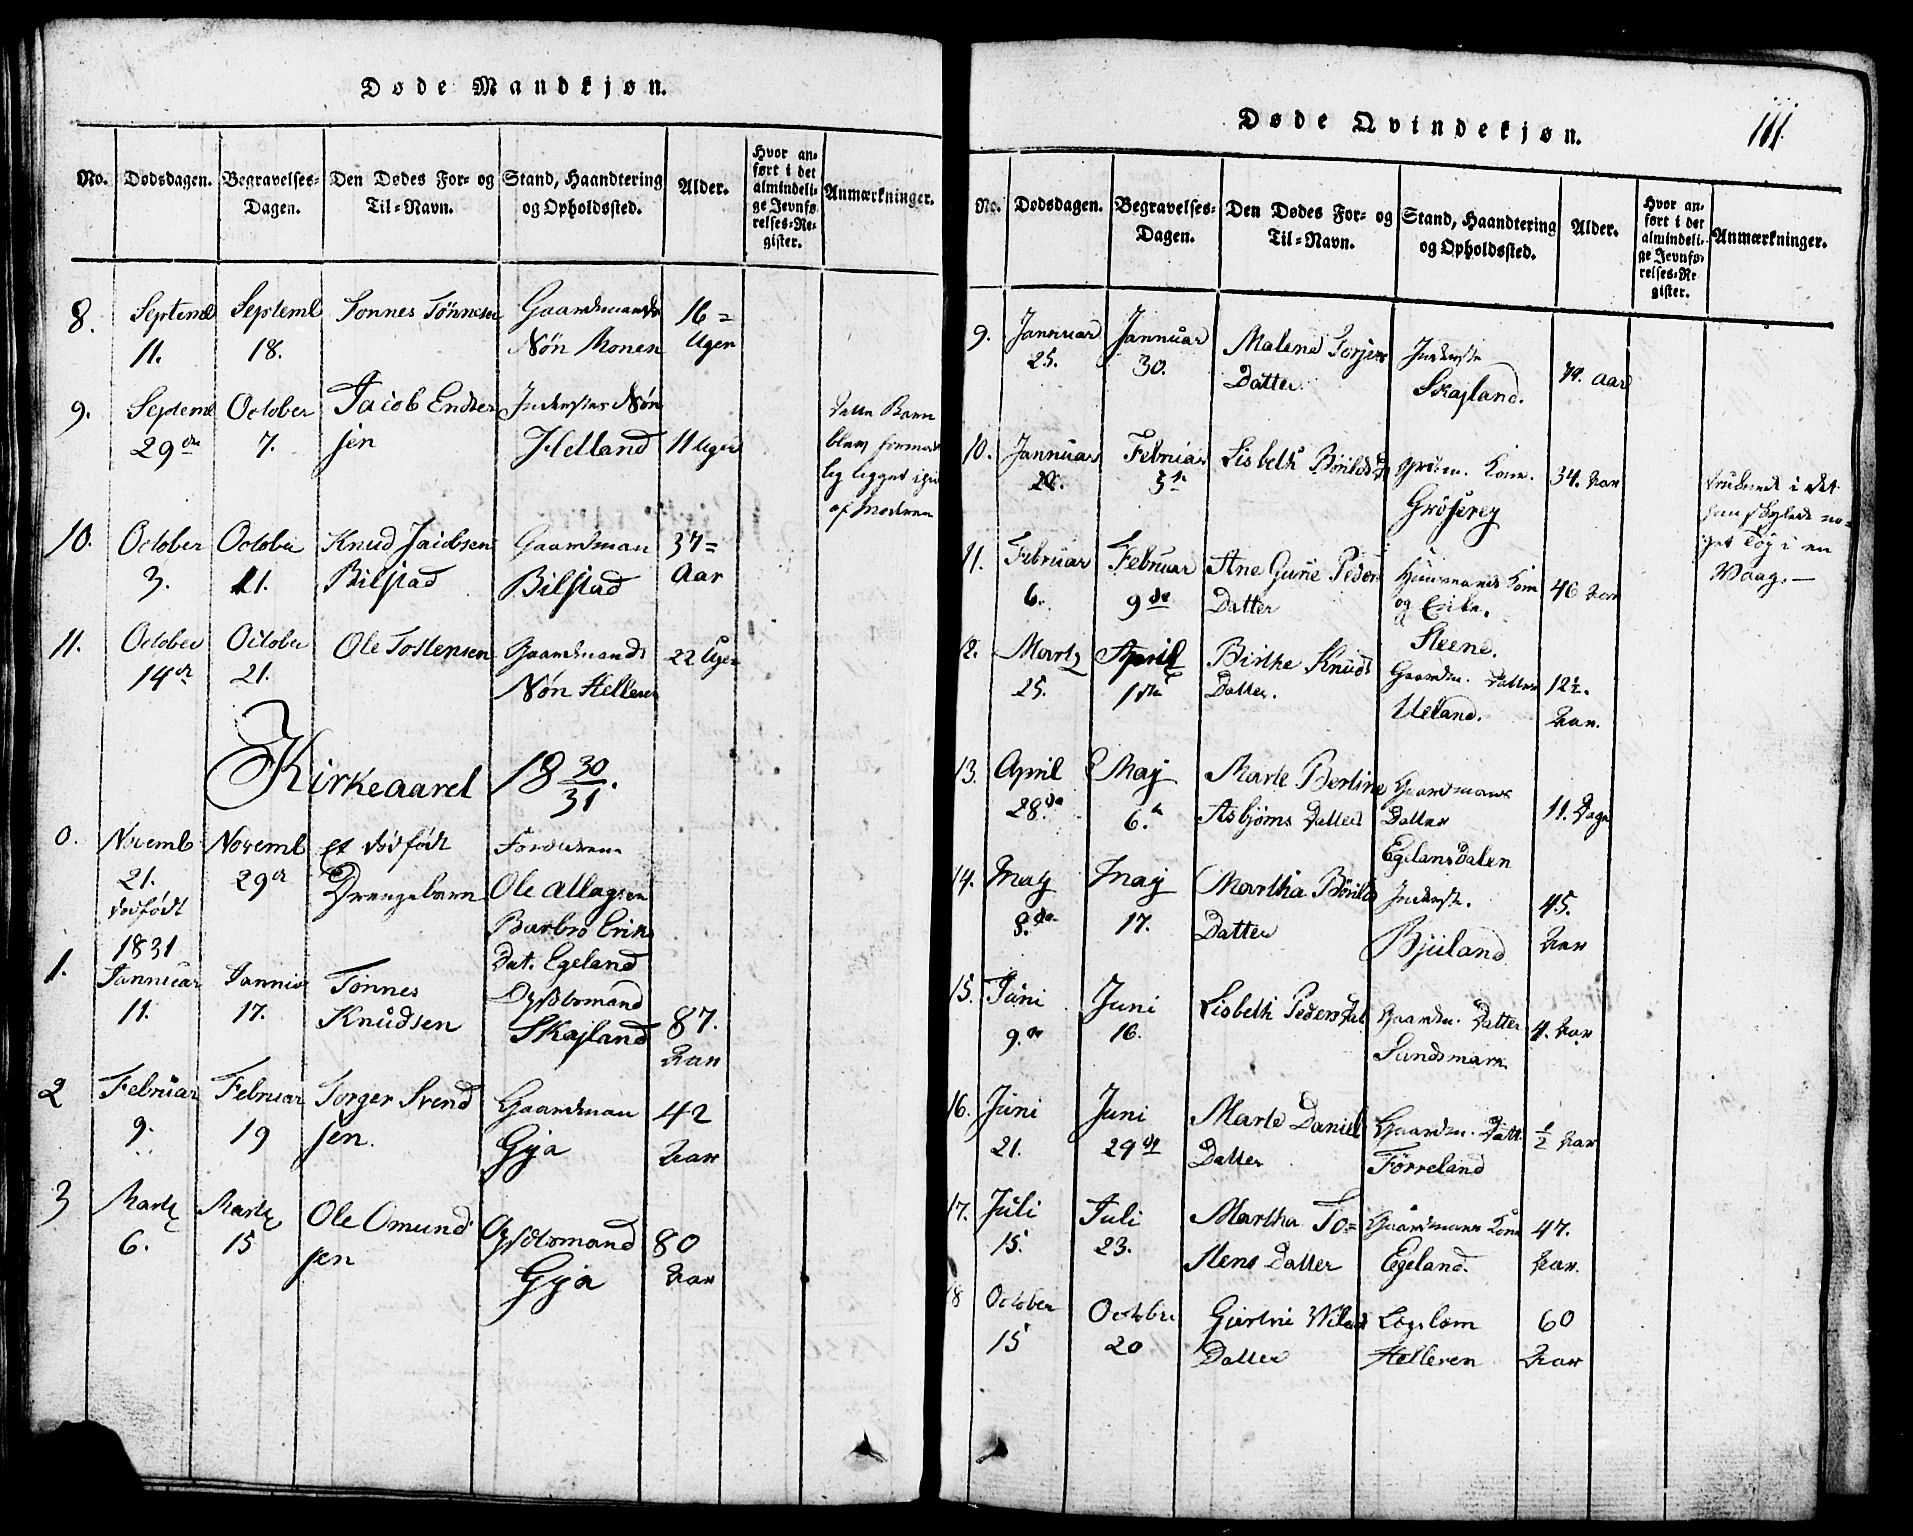 Døde Mandkjøn.
No. Dødsdagen. Begravelses-Dagen. Den Dødes For- og Til-Navn. Stand, Haandtering og Opholdssted. Alder. Hvor anført i det almindelige Jevnførelses-Register. Anmærkninger.
8. Septembl Septembl Tonnes Tönnesen Gaardmands 16=
11. 18. Søn Monen Uger
9. Septembl October Jacob Endre Inderstes Søn Dette Barn
29de 7. sen Helland 11 Uger blev
lig legget ihjel
af Moderen
10. October October Knud Jacobsen Gaardman 37=
3. 11. Bilstad Bilstad Aar
11. October October Ole Tostensen Gaardmands 22 Uger
14de 21. Søn Helleren
Kirkeaaret 18 30/31.
0. Novemb Novemb et dødfødt Forældrene
21. 29de Drengebarn Ole Allagsen
dødfødt Barbro Eriks
1831 Dat. Egeland
1. Jannuar Januar Tonnes
11. 17. Knudsen Skajland 87.
Aar
2 Februar Februar Torger Svend Gaardman 42
9. 19 sen. Gya Aar
3 Marts Marts Ole Omund 80
6. 15 sen Gya Aar
Døde Qvindekjøn.
111.
No. Dødsdagen. Begravelses-Dagen. Den Dødes For- og Til-Navn. Stand, Haandtering og Opholdssted. Alder. Hvor anført i det almindelige Jevnførelses-Register. Anmærkninger.
9. Jannuar Jannuar Malene Torjers Inderste
25. 30. Datter Skajland. 79. Aar
10. Jannuar Februar Lisbeth Börilds D Kone. 34. Aar druknede i det
5te Gröserey hun skylede no-
get Töy i en
Vaag. —
11. Februar Februar Ane Gurie Peders Huusmands Kone 46 Aar
6. 9de Datter og
Steene.
12. Marts April Birthe Knuds Gaardm. Datter 12½.
25. 1ste Datter. Ueland. Aar.
13. April May Marte Bertine Gaardmans
28de 6te Asbjörns Datter Datter 11. Dage
Egelandsdalen
14. May May Martha Börilds Inderste. 45.
8de 17. Datter Bjuland Aar
15. Juni Juni Lisbeth Peders Dat Gaardm. Datter 4. Aar
9de 16. Sundsmark
16. Juni Juni Marte Daniels Gaardm. Datt. ½ Aar
21. 29de Datter Förreland
17. Juli Juli Martha To= Gaardmans Kone 47.
15. 23. stens Datter Egeland. Aar.
18 October October Gjertrü Logslem 60
15 20 Datter Helleren Aar